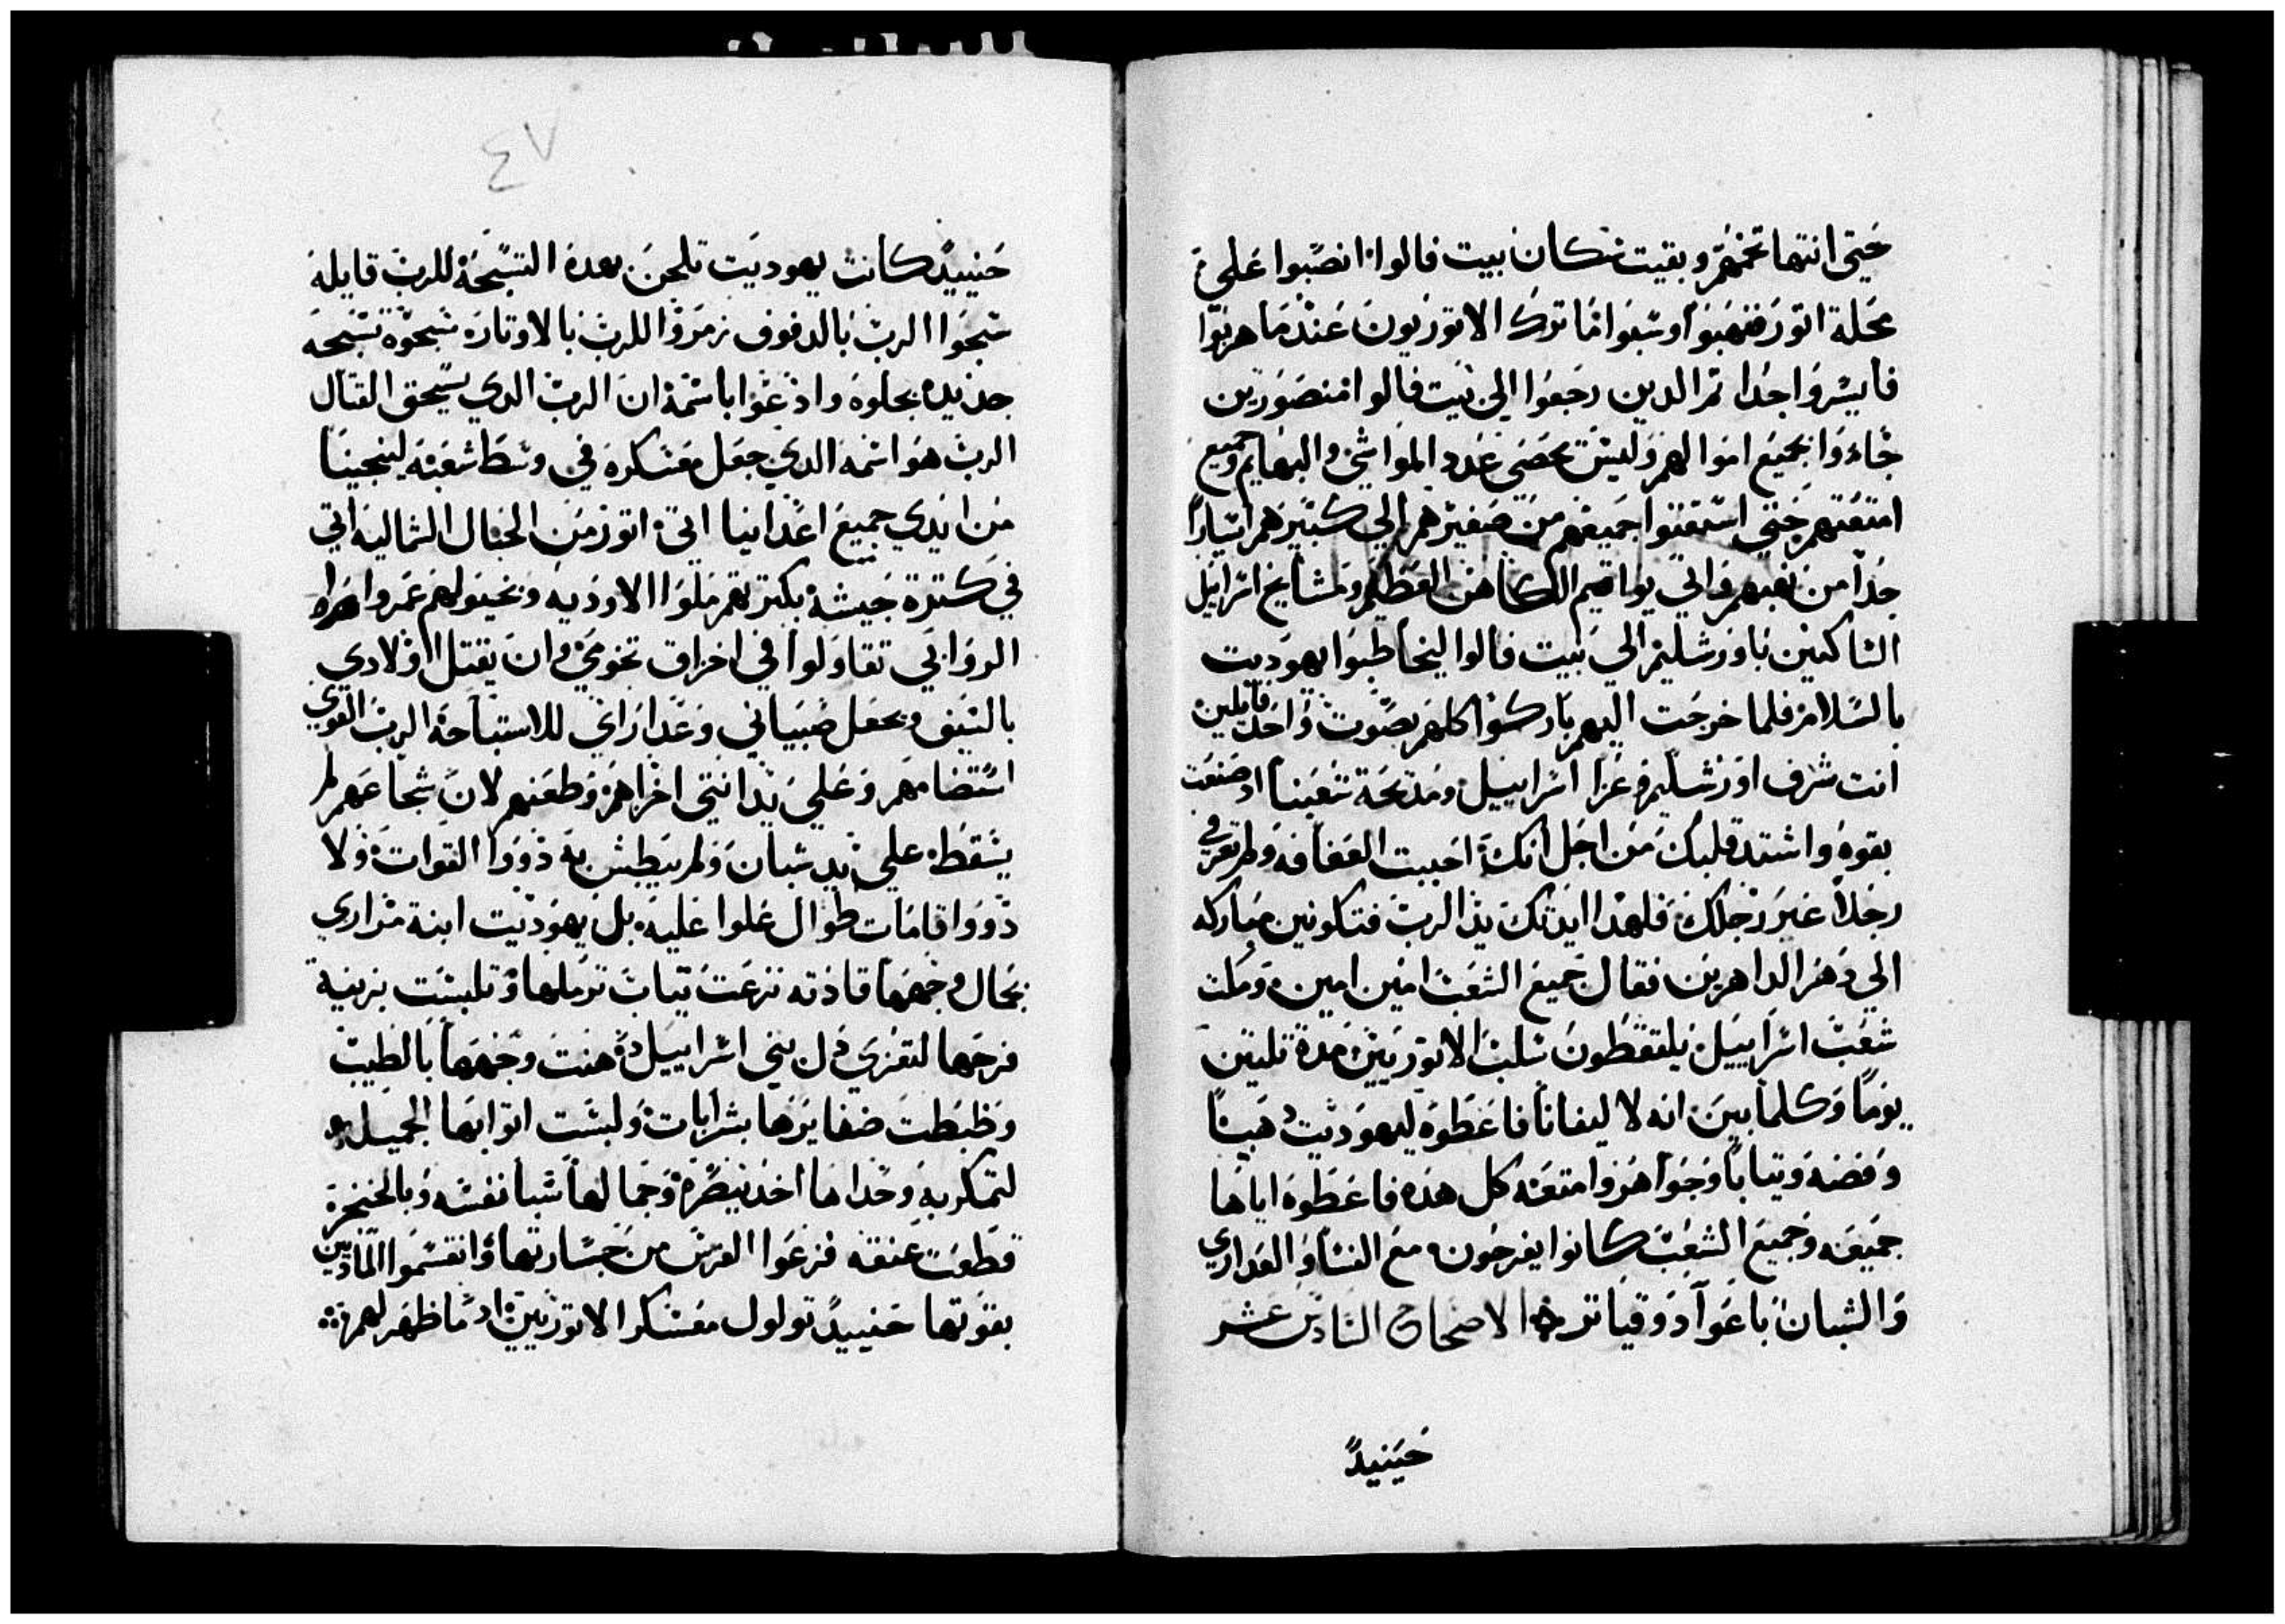 حتى انتها تخمهم وبقيت سكان بيت فالوا انصبوا علي
محلة اتور فنهبوا وسبوا ما ترك الاتوريون عندما هربوا
فايسروا جدا ثم الدين رجعوا الي بيت فالوا منصورين
جاءوا بجميع اموالهم وليس يحصي عدد المواشي والبهايم وجميع
امتعتهم حتي استغنوا جميعهم من صغيرهم الي كبيرهم ايسارا
جدا من نهبهم واتي يواقيم الكاهن العظيم ومشايخ اسراييل
الساكنين باورشليم الي بيت فالوا ليخاطبوا يهوديت
بالسلام فلما خرجت اليهم باركوا كلهم بصوت واحد قايلين
انت شرف اورشليم وعزا اسراييل ومدبحة شعبنا اد صنعت
بقوه واشتد قلبك من اجل انك احببت العفافه ولم تعرفي
رجلا غير رجلك فلهدا ايدتك يد الرب فتكونين مباركه
الي دهر الداهرين فقال جميع الشعب امين امين ومكت
شعب اسراييل يلتقطون سلب الاتوريين مدة تلتين
يوما وكلما بين انه لاليفانا فاعطوه ليهوديت دهبا
وفضه وتيابا وجواهر وامتعه كل هده فاعطوه اياها
جميعه وجميع الشعب كانوا يفرحون مع النسا والعداري
والشبان باعواد وقياتر الاصحاح السادس عشر
حينيد
٤٧
حنييد كانت يهوديت تلحن بهدة التسبحة للرب قايله
سبحوا الرب بالدفوف زمروا للرب بالاوتاره سبحوه تسبحه
جديده بجلوه وادعوا باسمه ان الرب الدي يسحق القتال
الرب هو اسمه الدي جعل معسكره في وسط شعبه لينجينا
من ايدي جميع اعداينا اتي اتور من الجبال الشماليه اتي
في كترة جيشه بكترتهم ملوا الاوديه وبخيولهم غمروا
الروابي تقاولوا في احراق تخومي وان يقتل اولادي
بالسيف ويجعل صبياني وعداراي للاستباحة الرب القوي
استضامهم وعلي يد انتي اخزاهم وطعنهم لان شجاعهم لم
يسقط علي يد شبان ولم يبطش به دووا القوات ولا
دووا قامات طوال علوا عليه بل يهوديت ابنة مراري
بجمال وجهها قادته نزعت تياب ترملها وتلبست بزينة
فرحها لتعزي ال بني اسراييل دهنت وجهها بالطيب
وظبطت ضفايرها بشرابات ولبست اتوابها الجميله
لتمكر به وحداها اخد بصره وجمالها سبا نفسه وبالخنجر
قطعت عنقه فزعوا الفرس من جسارتها وانقسموا المادين
بقوتها حنييد تولول معسكر الاتوريين اد ما ظهر لهم